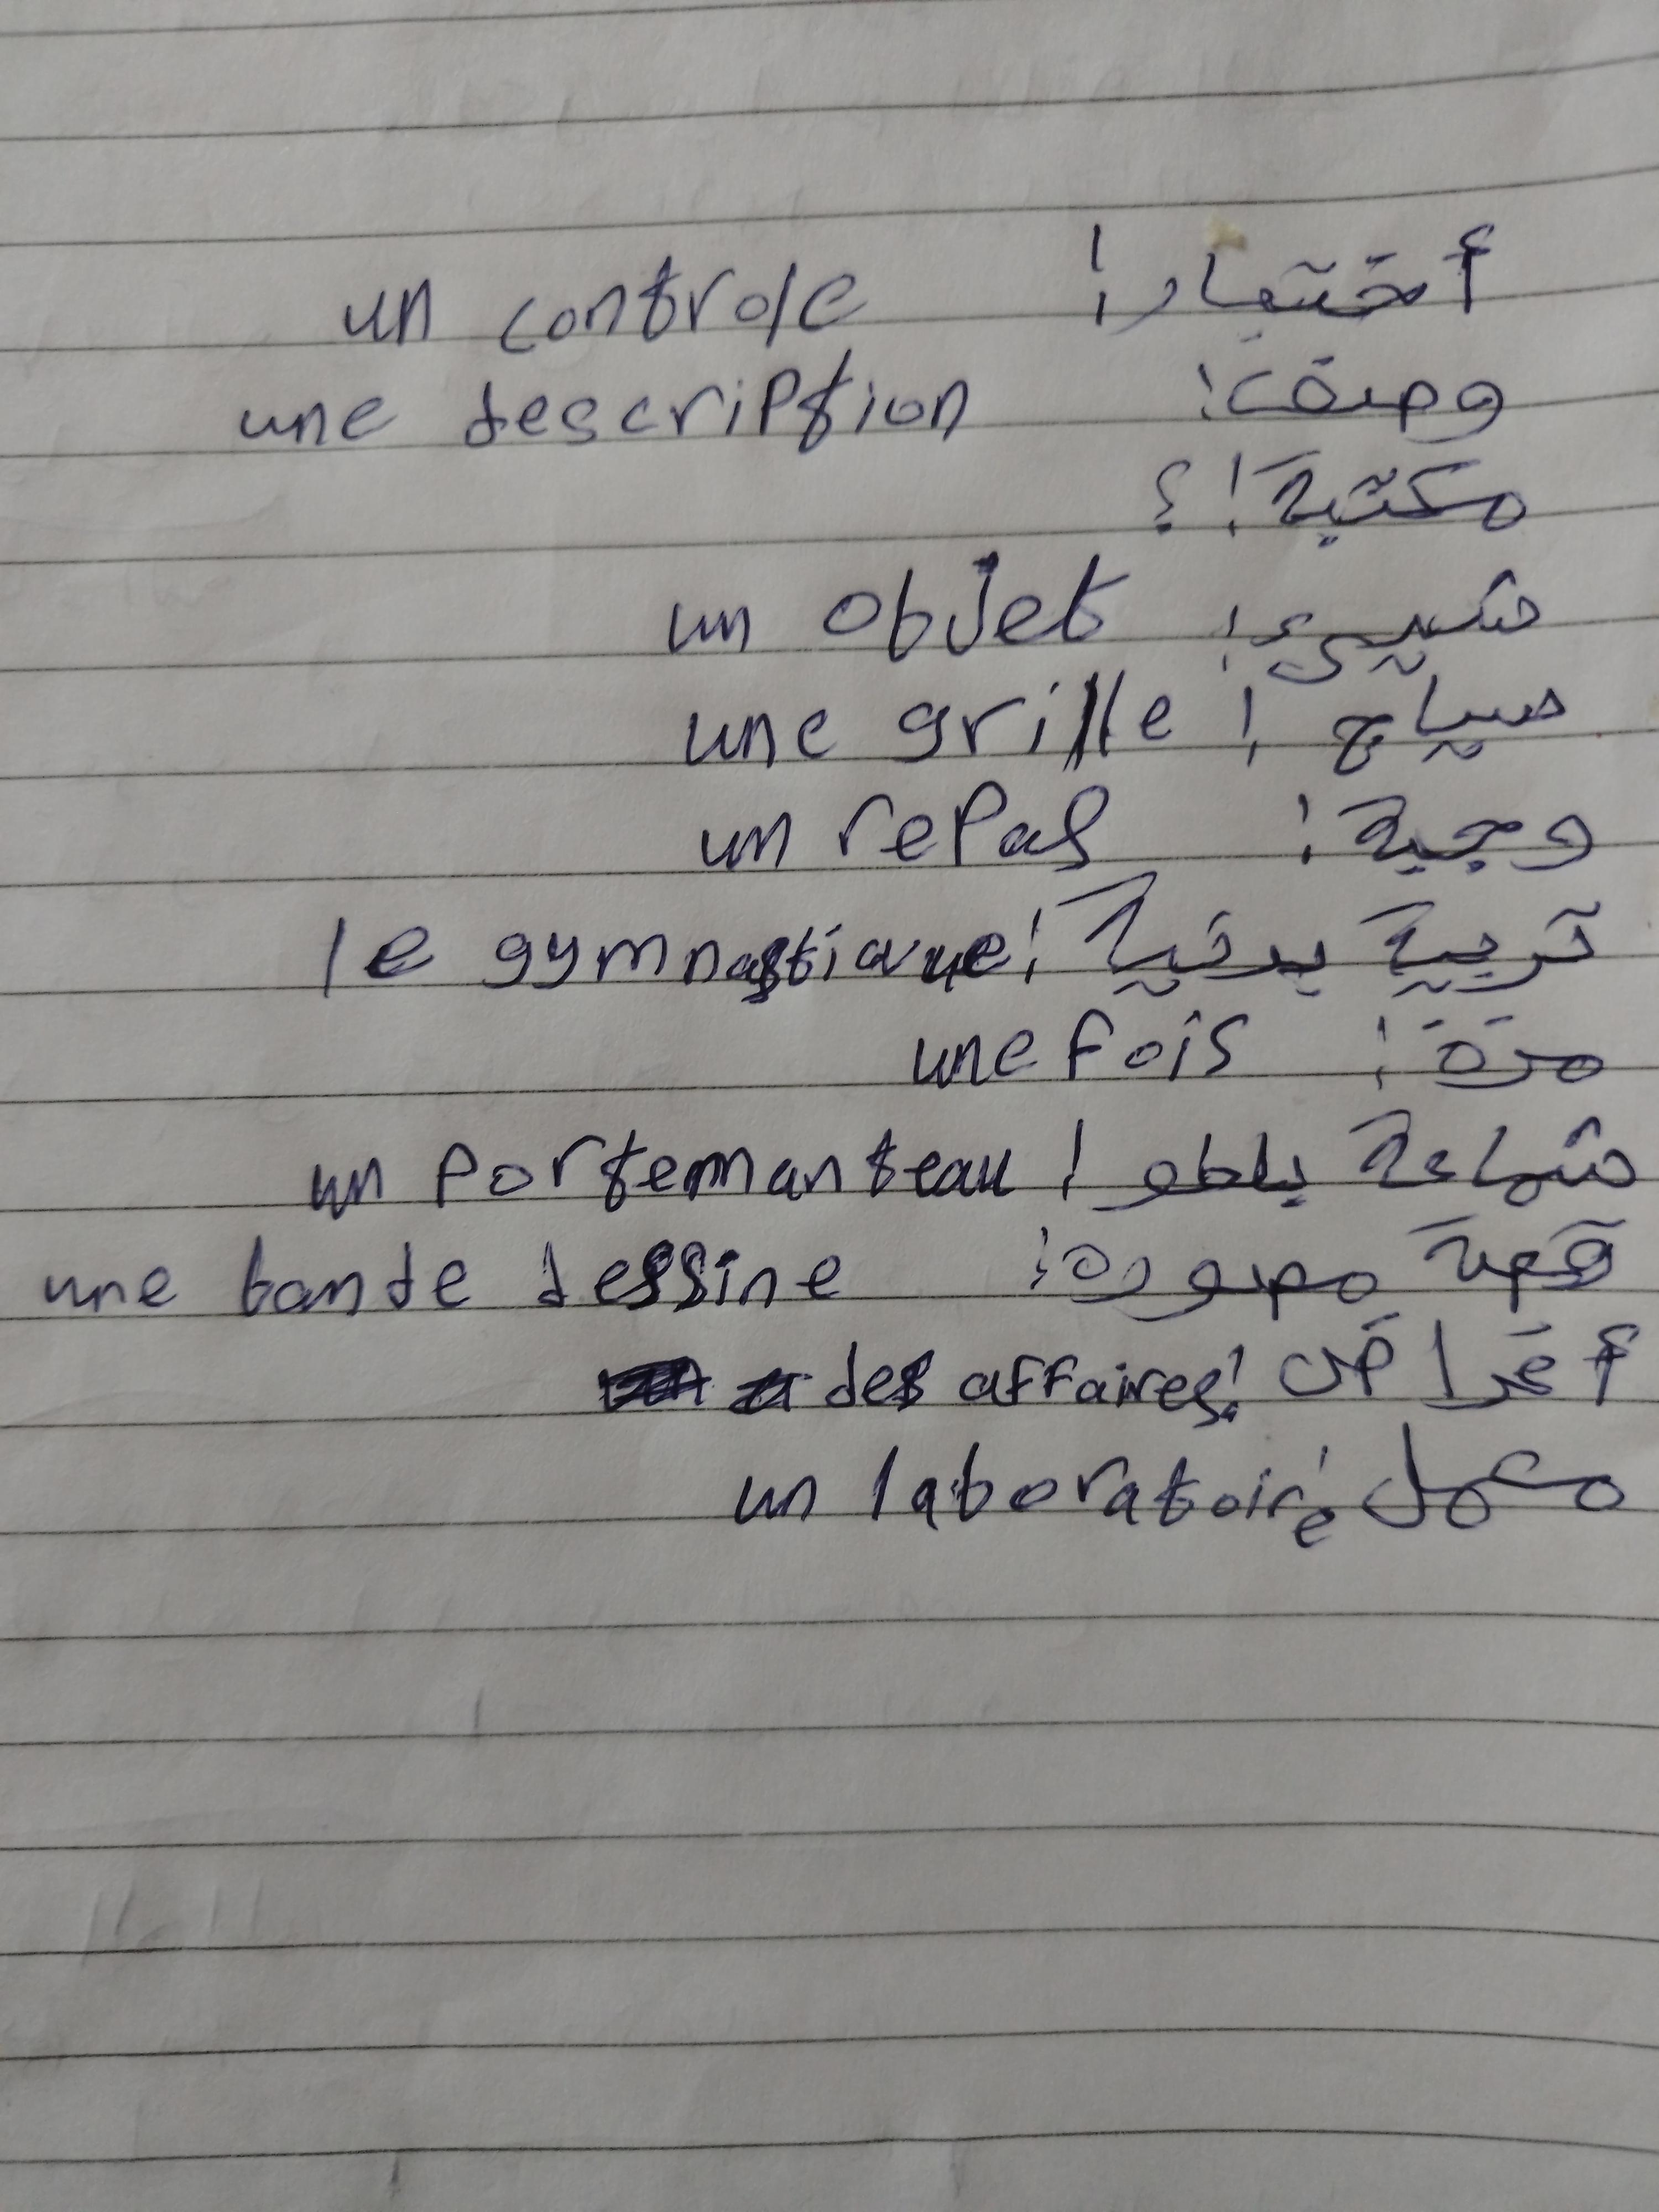 أختبار: un controle
وصف: une description
مكتبة: ؟
شيىء: un objet
سياج: une grille
وجبة: un repas
تربية بدنية: le gymnastique
مرة: une fois
شماعة بلطو: un portemanteau
قصة مصورة: une bande dessine
أغراض: des affaires
معمل: un laboratoire